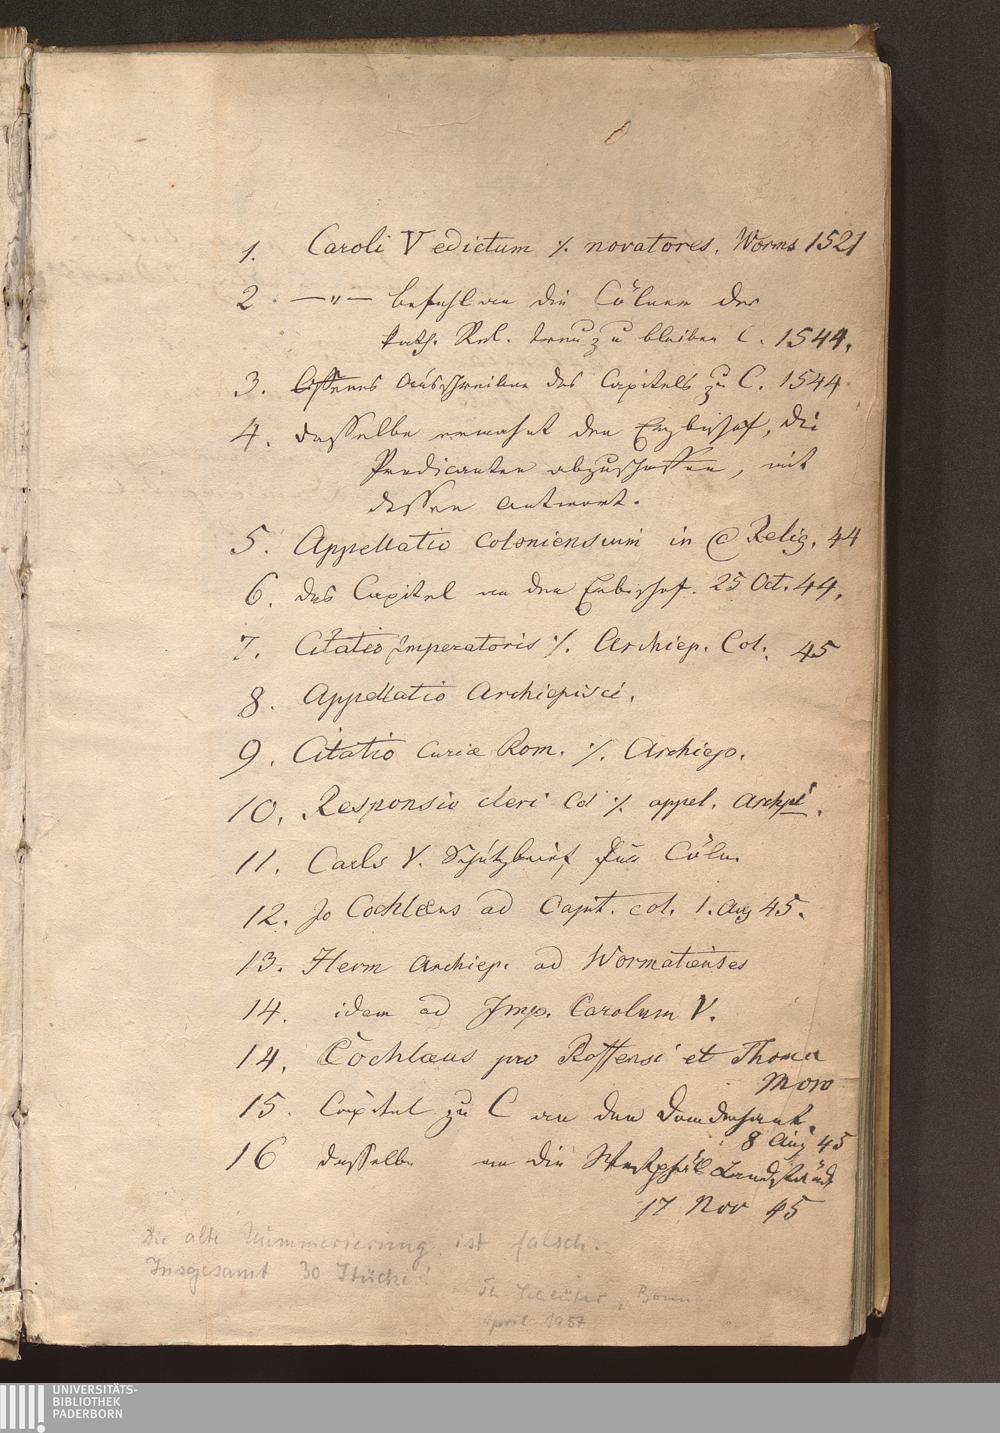 1. Caroli V edictum ./. novatores, Worms 1521
2. —"— befehl an die Cölner der
kath. Rel. treu zu bleiben C. 1544.
3. Offenes Ausschreiben des Capitels zu C. 1544
4. dasselbe ermahnt den Erzbischof, die
Predicanten abzuschaffen, mit
dessen Antwort.
5. Appellatio Coloniensium in Relig. 44
6. das Capitel an den Erzbischof. 25 Oct. 44.
7. Citatio Imperatoris ./. Archiep. Col. 45
8. Appellatio Archiepisci.
9. Citatio Curiæ Rom. ./. Archiep.
10. Responsio cleri Col ./. appel. Archpi.
11. Carls V. Schützbrief für Cöln.
12. Jo Cochlæus ad Capit. col. 1. Aug 45.
13. Herm Archiep. ad Wormatienses
14. idem ad Imp. Carolum V.
14. Cochlæus pro Roffensi et Thoma
Moro
15. Capitel zu C an den Domdechant.
8 Aug 45
16 dasselbe an die Westphäl Landstände
17 Nov 45
Die alte Nummerierung ist falsch.
Insgesamt 30 Stücke!
Th. Schlüter, Bonn
April 1957
UNIVERSITÄTS-
BIBLIOTHEK
PADERBORN